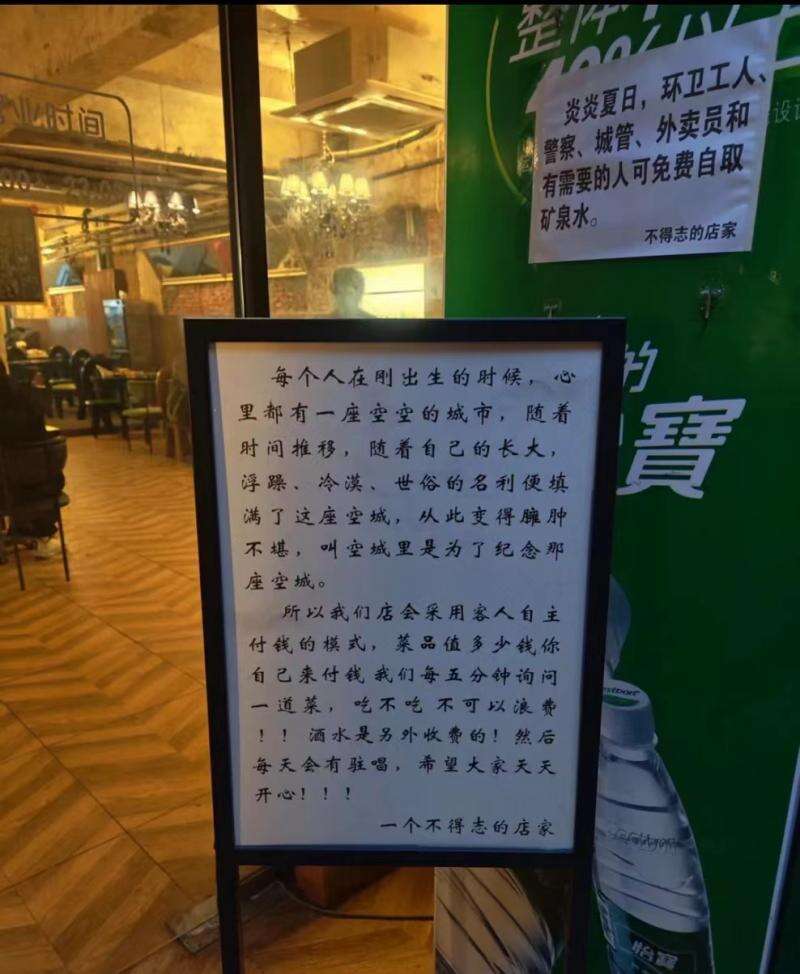 整体
业时间
炎炎夏日，环卫工人、
警察、城管、外卖员和
有需要的人可免费自取
矿泉水。
不得志的店家
的
寶
每个人在刚出生的时候，心
里都有一座空空的城市，随着
时间推移，随着自己的长大，
浮躁、冷漠、世俗的名利便填
满了这座空城，从此变得臃肿
不堪，叫空城里是为了纪念那
座空城。
所以我们店会采用客人自主
付钱的模式，菜品值多少钱你
自己来付钱 我们每五分钟询问
一道菜，吃不吃 不可以浪费
！！ 酒水是另外收费的！然后
每天会有驻唱，希望大家天天
开心！！！
一个不得志的店家
怡寶